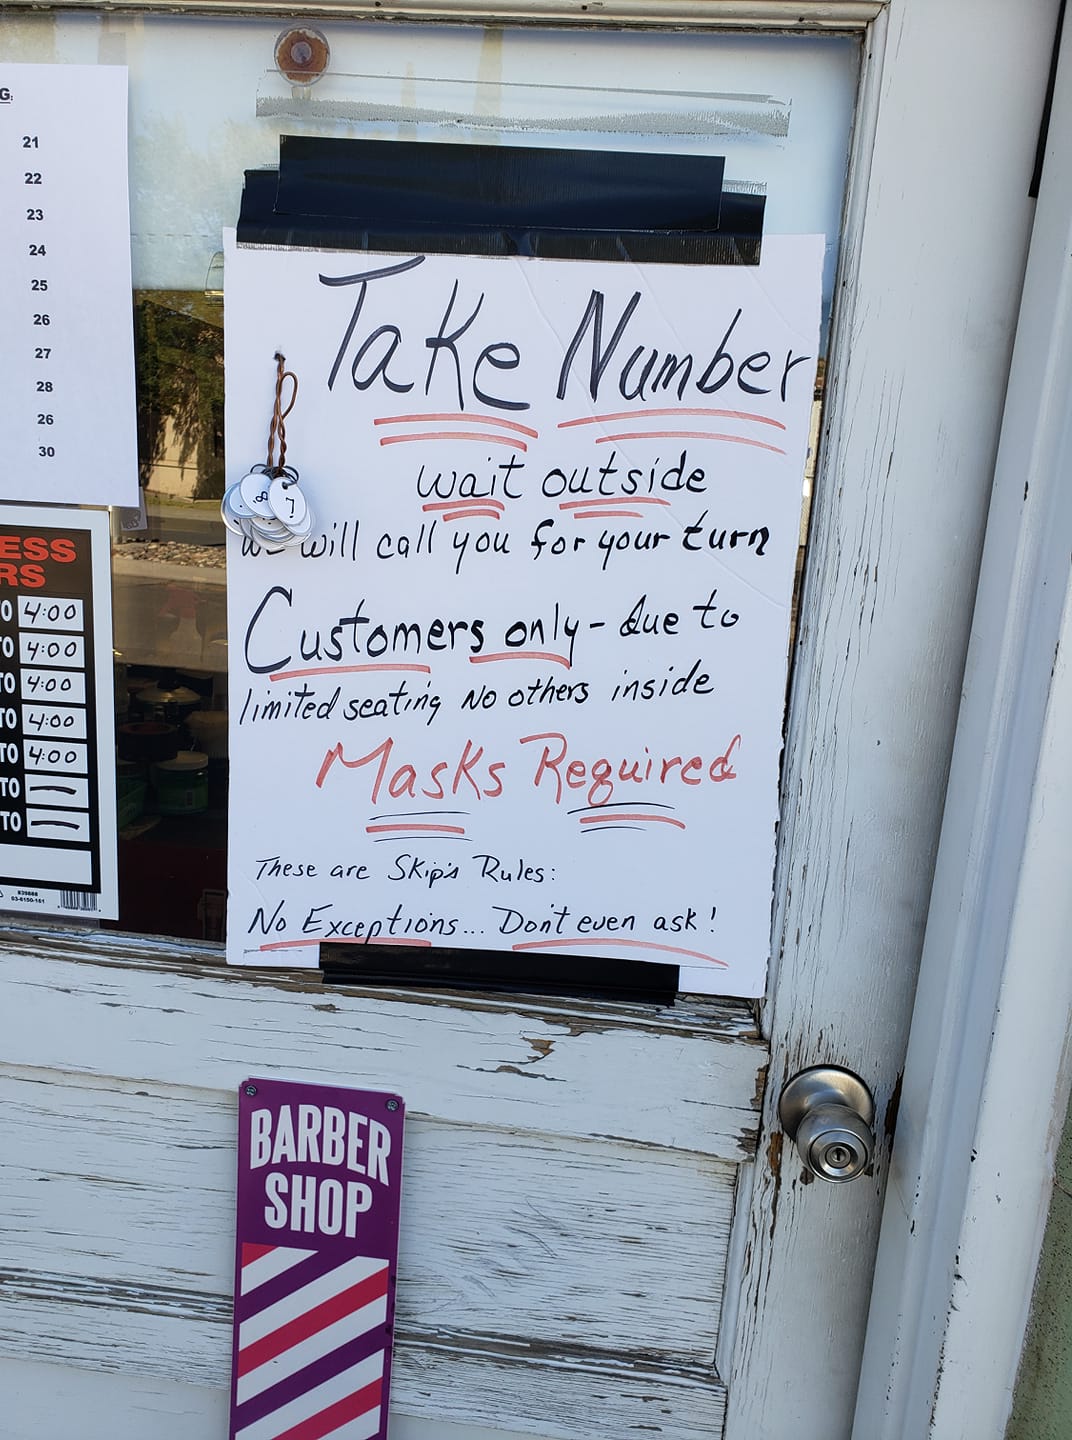 G:
21
22
23
24
25
26
27
28
26
30
Take Number
wait outside
We will call you for your turn
Customers only - due to
limited seating No others inside
Masks Required
These are Skip's Rules:
No Exceptions... Don't even ask!
8
7
ESS
RS
TO 4:00
TO 4:00
TO 4:00
TO 4:00
TO 4:00
TO —
TO —
839888
03-6150-161
BARBER
SHOP